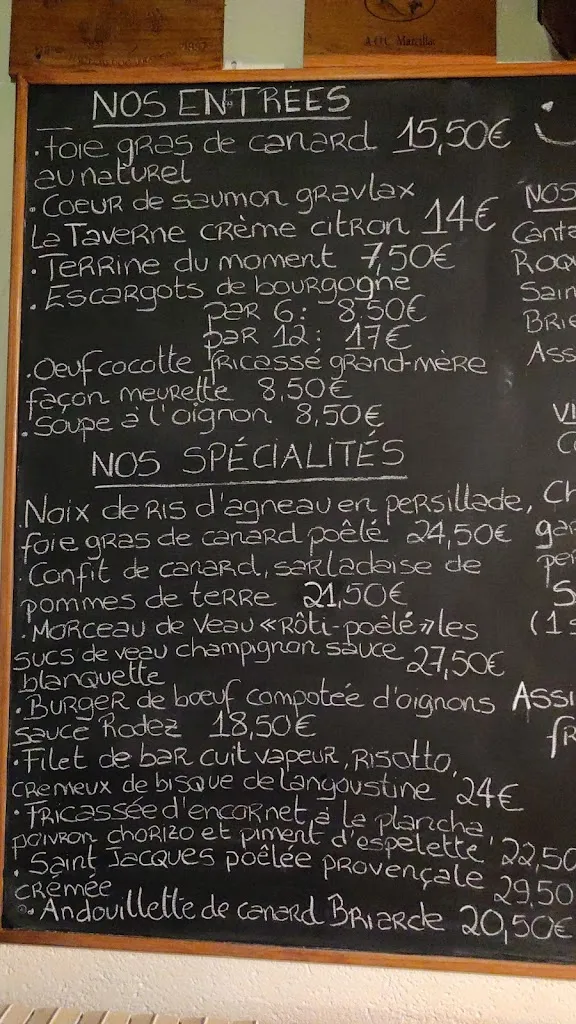 A.O.C. Marcillac
NOS ENTRÉES
. Foie gras de canard 15,50€
au naturel
. Coeur de saumon gravlax
La Taverne crème citron 14€
. Terrine du moment 7,50€
. Escargots de bourgogne
par 6: 8.50€
par 12: 17€
. Oeuf cocotte fricassé grand-mère
façon meurette 8,50€
. Soupe à l'oignon 8,50€
NOS SPÉCIALITÉS
. Noix de Ris d'agneau en persillade,
foie gras de canard poêlé 24,50€
. Confit de canard, sarladaise de
pommes de terre 21,50€
. Morceau de veau «Rôti-poêlé» les
sucs de veau champignon sauce 27,50€
blanquette
. Burger de bœuf compotée d'oignons
sauce Rodez 18,50€
. Filet de bar cuit vapeur, Risotto,
cremeux de bisque de langoustine 24€
. Fricassée d'encornet, à la plancha
poivron chorizo et piment d'espelette 22,50
. Saint Jacques poêlée provençale 29,50
crèmée
. Andouillette de canard Briarde 20,50€
NOS
Canta
Roqu
Sain
Brie
Ass
Vi
Ch
gar
S
(1s
Assi
fr